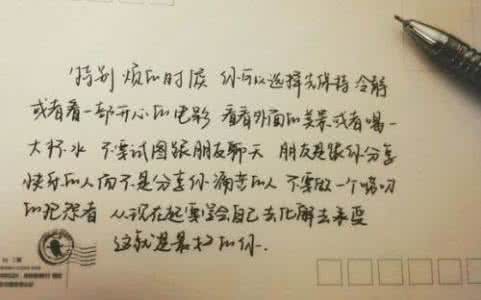 特别烦的时候 你可以选择先保持冷静
或者看一部开心的电影 看看外面的美景或者喝一
大杯水 不要试图跟朋友聊天 朋友是跟你分享
快乐的人而不是分享你痛苦的人 不要做一个唠叨
的抱怨者 从现在起要学会自己去化解去承受
这就是最好的你.